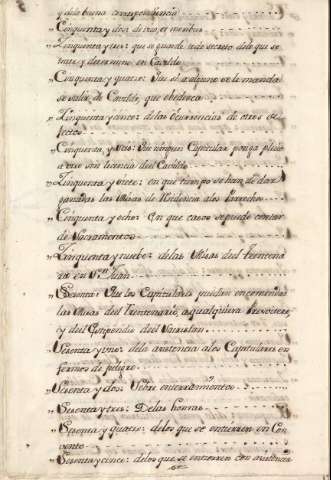 y dela buena correspondencia
Cinquenta y dos: de
Cinquenta y tres: que se guarde todo secreto delo que se
trate, y determine en Cavildo
Cinquenta y quatro: Que si a alguno se le manda
se salir de Cavildo, que obedesca
Cinquenta y cinco: de las
Cinquenta, y seis: Que ningun Capitular ponga pleito
a otro sin licencia del Cavildo
Cinquenta y siete: en que tiempo se han de dar
ganadas las Misas de
Cinquenta y ocho: En que casos se puede contar
de Sacramentos
Cinquenta y nueve: delas Misas del Trentena
rio en Sn. Juan
Sesenta: Que los Capitulares puedan encomendar
las Misas del Trentenario, a qualquiera
y del Compendio del
Sesenta y uno: dela asistencia alos Capitulares en
fermos de peligro
Sesenta y dos: Sobre enterramientos
Sesenta y tres: Delas honras
Sesenta y quatro: delos que se entierren en Con
vento
Sesenta y cinco: delos que se entierren con asistencia